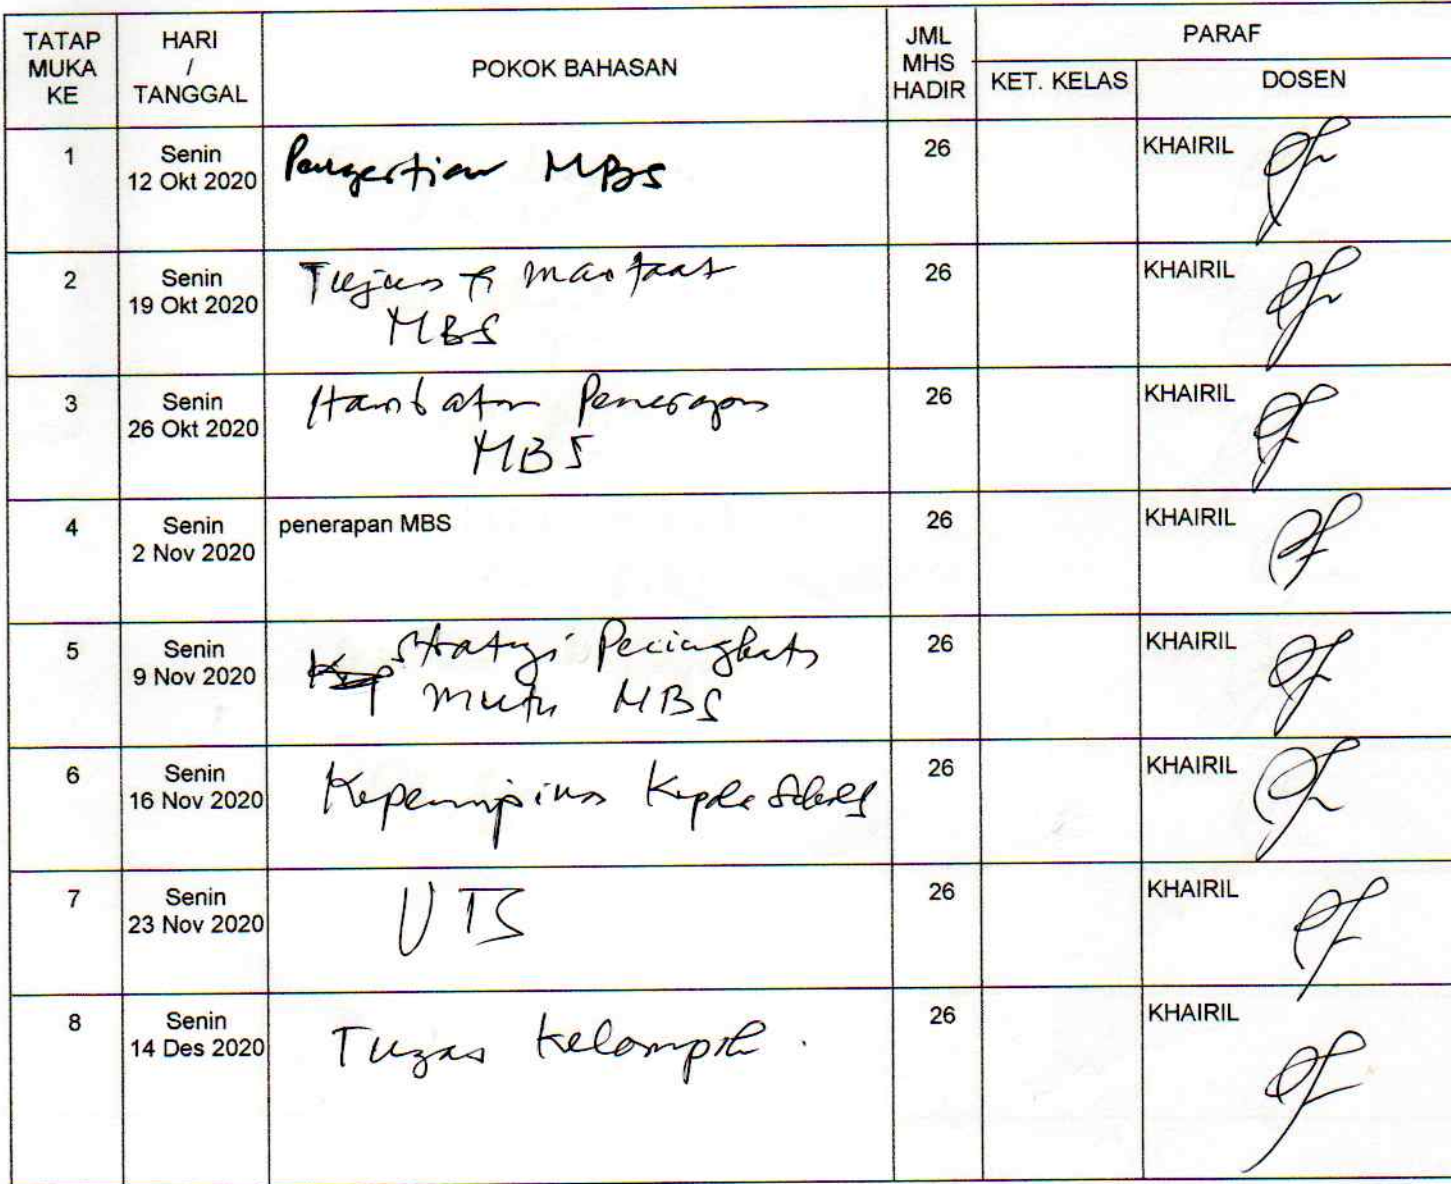 TATAP MUKA KE
HARI / TANGGAL
POKOK BAHASAN
JML MHS HADIR
PARAF
KET. KELAS
DOSEN
1
Senin
12 Okt 2020
Pengertian MBS
26
KHAIRIL
2
Senin
19 Okt 2020
Tujuan & manfaat
MBS
26
KHAIRIL
3
Senin
26 Okt 2020
Hambatan Penerapan
MBS
26
KHAIRIL
4
Senin
2 Nov 2020
penerapan MBS
26
KHAIRIL
5
Senin
9 Nov 2020
Strategi
mutu MBS
26
KHAIRIL
6
Senin
16 Nov 2020
Kepemimpinan Kepala Sekolah
26
KHAIRIL
7
Senin
23 Nov 2020
UTS
26
KHAIRIL
8
Senin
14 Des 2020
Tugas kelompok.
26
KHAIRIL